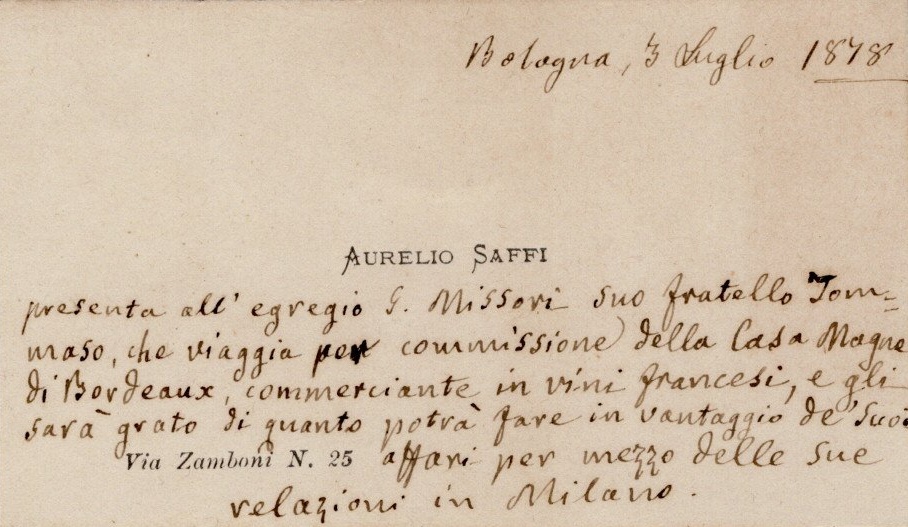 Bologna, 3 Luglio 1878
AURELIO SAFFI
presenta all' egregio G. Missori suo fratello Tom=
maso, che viaggia per commissione della Casa Magne
di Bordeaux, commerciante in vini francesi, e gli
sarà grato di quanto potrà fare in vantaggio de' suoi
Via Zamboni N. 25 affari per mezzo delle sue
relazioni in Milano.